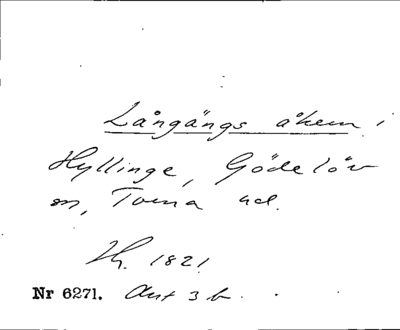 Långängs åkern i
Hyllinge, Gödelöv
sn, Torna hd.
Th. 1821
Nr 6271. Akt 3 b.